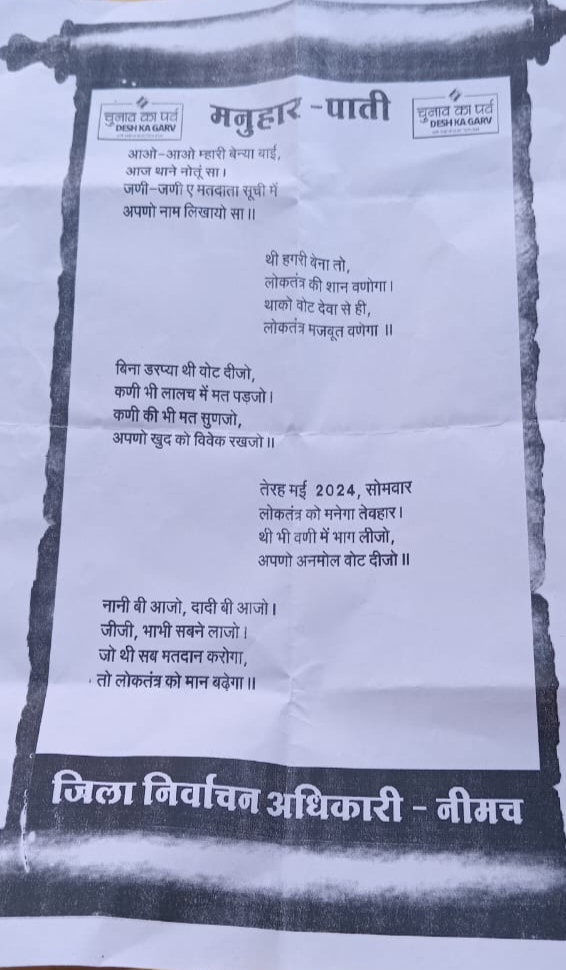 चुनाव का पर्व
DESH KA GARV
मनुहार -पाती
चुनाव का पर्व
DESH KA GARV
आओ-आओ म्हारी बेन्या बाई,
आज थाने नोतूं सा।
जणी-जणी ए मतदाता सूची में
अपणो नाम लिखायो सा॥
थी हगरी बेना तो,
लोकतंत्र की शान वणोगा।
थाको वोट देवा से ही,
लोकतंत्र मजबूत वणेगा ॥
बिना डरप्या थी वोट दीजो,
कणी भी लालच में मत पड़जो।
कणी की भी मत सुणजो,
अपणो खुद को विवेक रखजो॥
तेरह मई 2024, सोमवार
लोकतंत्र को मनेगा तेवहार।
थी भी वणी में भाग लीजो,
अपणो अनमोल वोट दीजो॥
नानी बी आजो, दादी बी आजो।
जीजी, भाभी सबने लाजो।
जो थी सब मतदान करोगा,
तो लोकतंत्र को मान बढ़ेगा॥
जिला निर्वाचन अधिकारी - नीमच